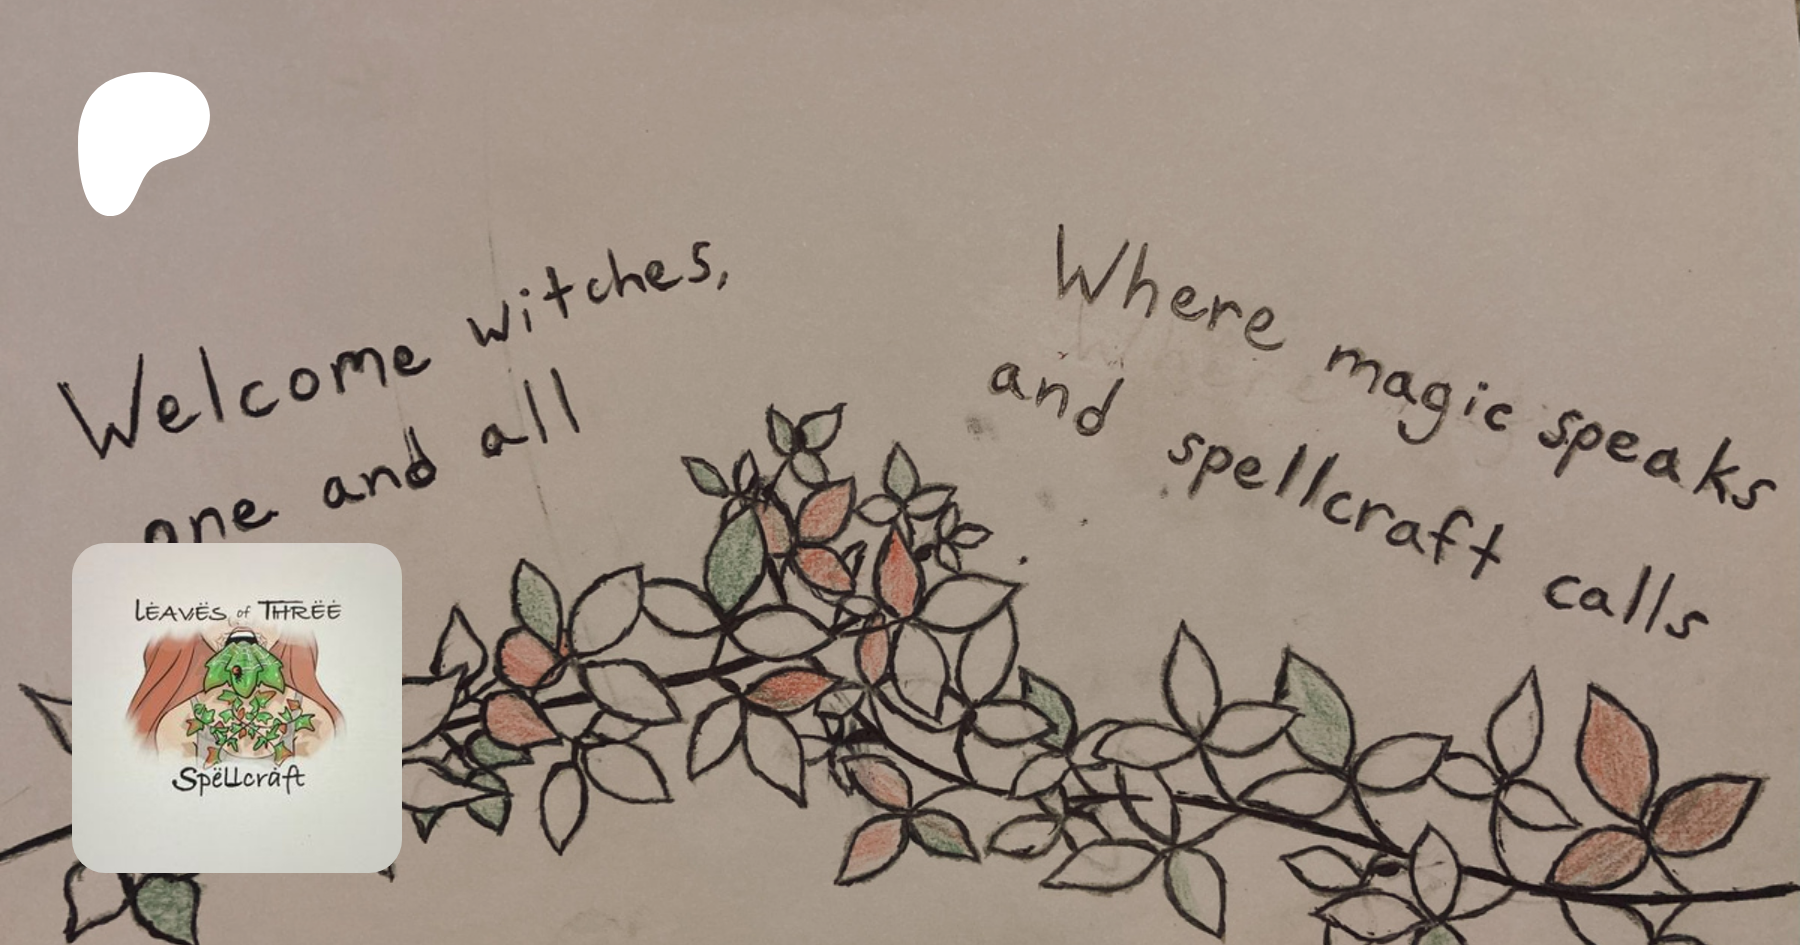 Welcome witches,
one and all
Where magic speaks
and spellcraft calls
LËAVËS of THRËË
Spëllcräft